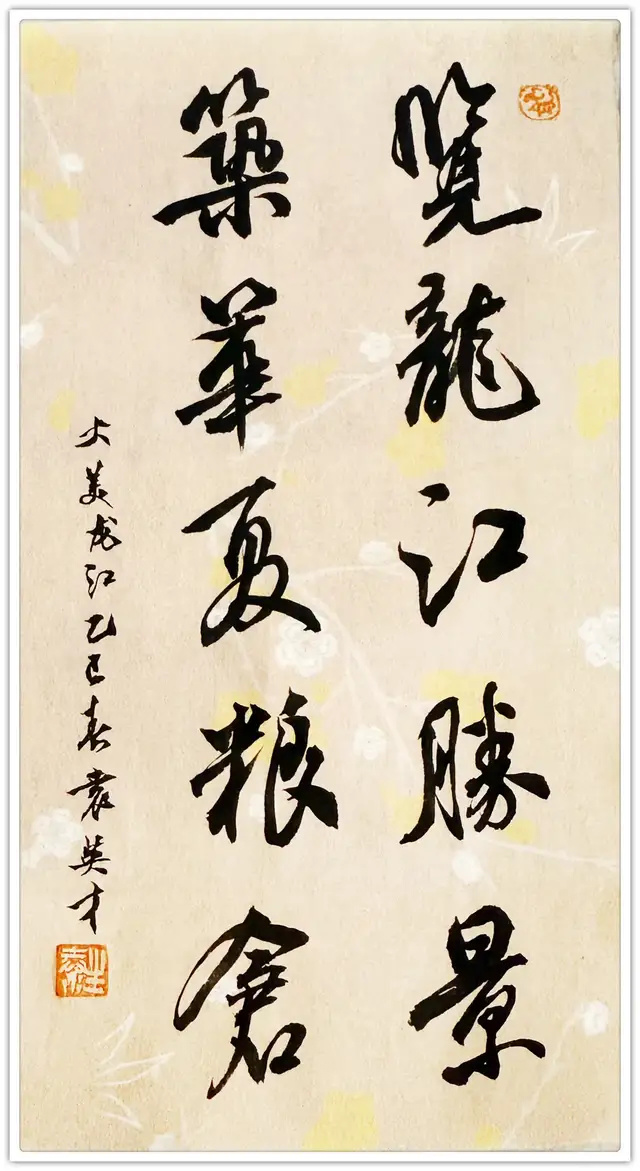 覽龍江勝景
築華夏粮倉
大美龙江乙巳春袁英才